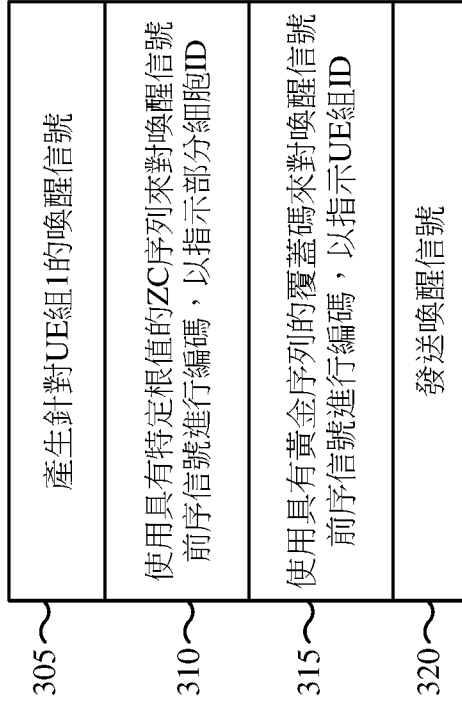 305
產生針對UE組1的喚醒信號
310
使用具有特定根值的ZC序列來對喚醒信號
前序信號進行編碼，以指示部分細胞ID
315
使用具有黃金序列的覆蓋碼來對喚醒信號
前序信號進行編碼，以指示UE組ID
320
發送喚醒信號